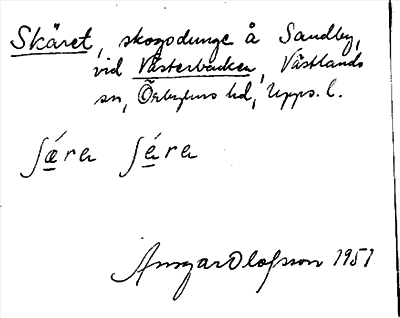 Skäret, skogsdunge å Sandby,
vid Västerbacken, Västlands
sn, Örbyhus hd, Upps. l.
ʃǽra ʃéra
Ansgar Olofsson 1951